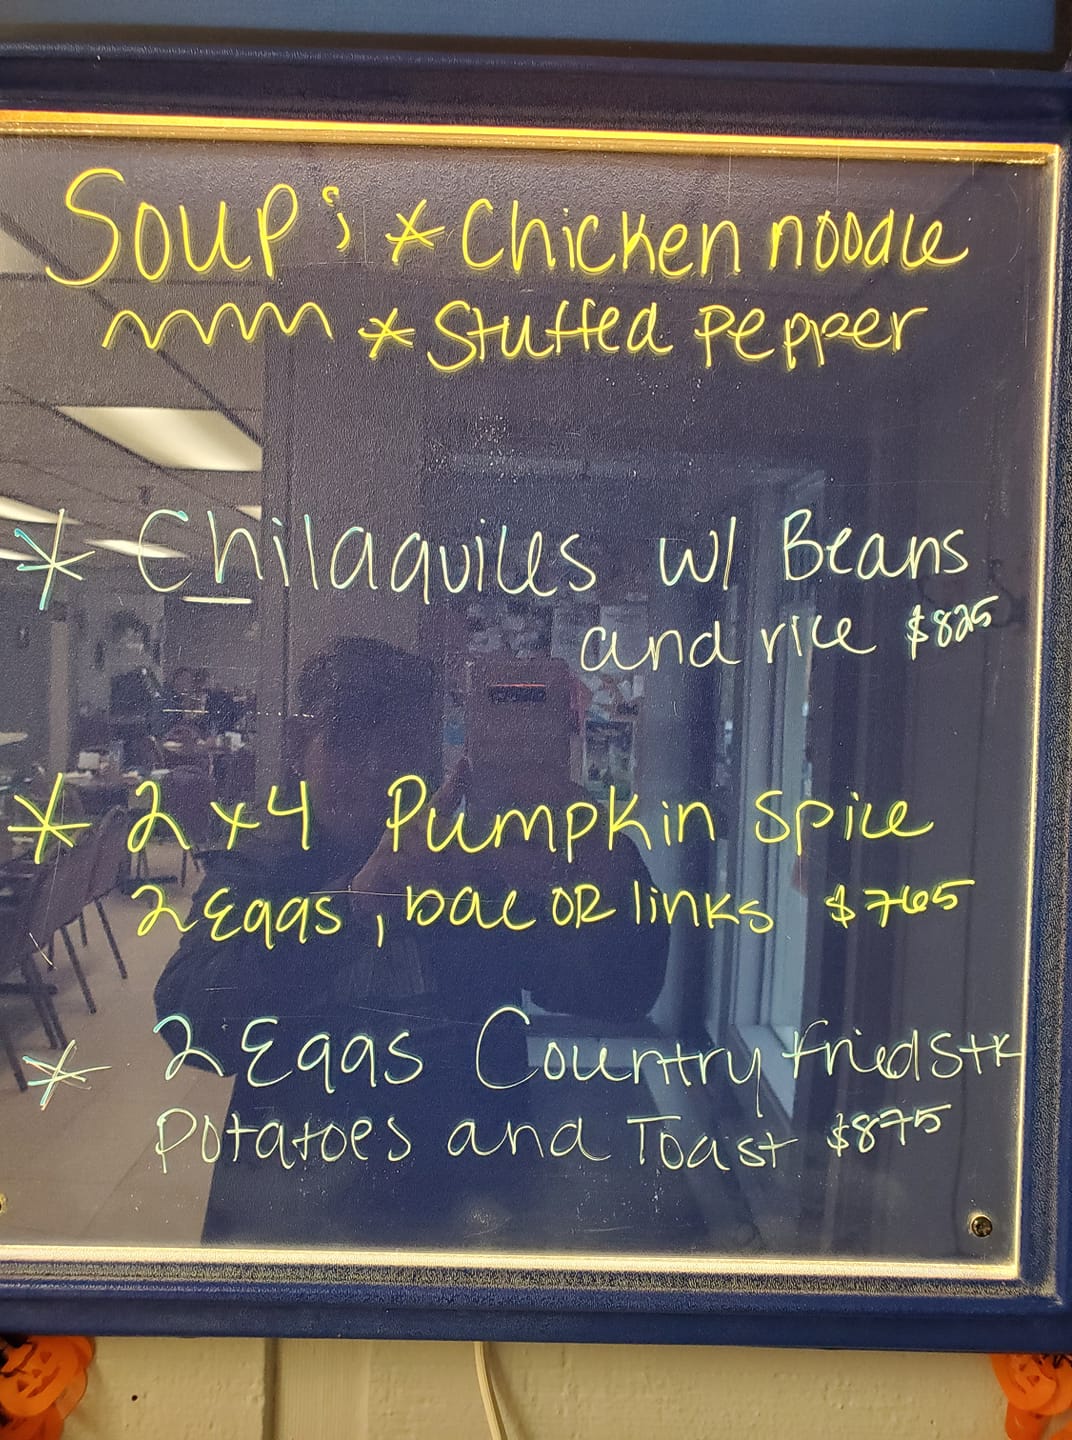 Soup: * Chicken noodle
* Stuffed Pepper
* Chilaquiles w/ Beans
and rice $825
* 2 x 4 Pumpkin Spice
2 Eggs, bac OR links $765
* 2 Eggs Country fried Stk
Potatoes and Toast $875